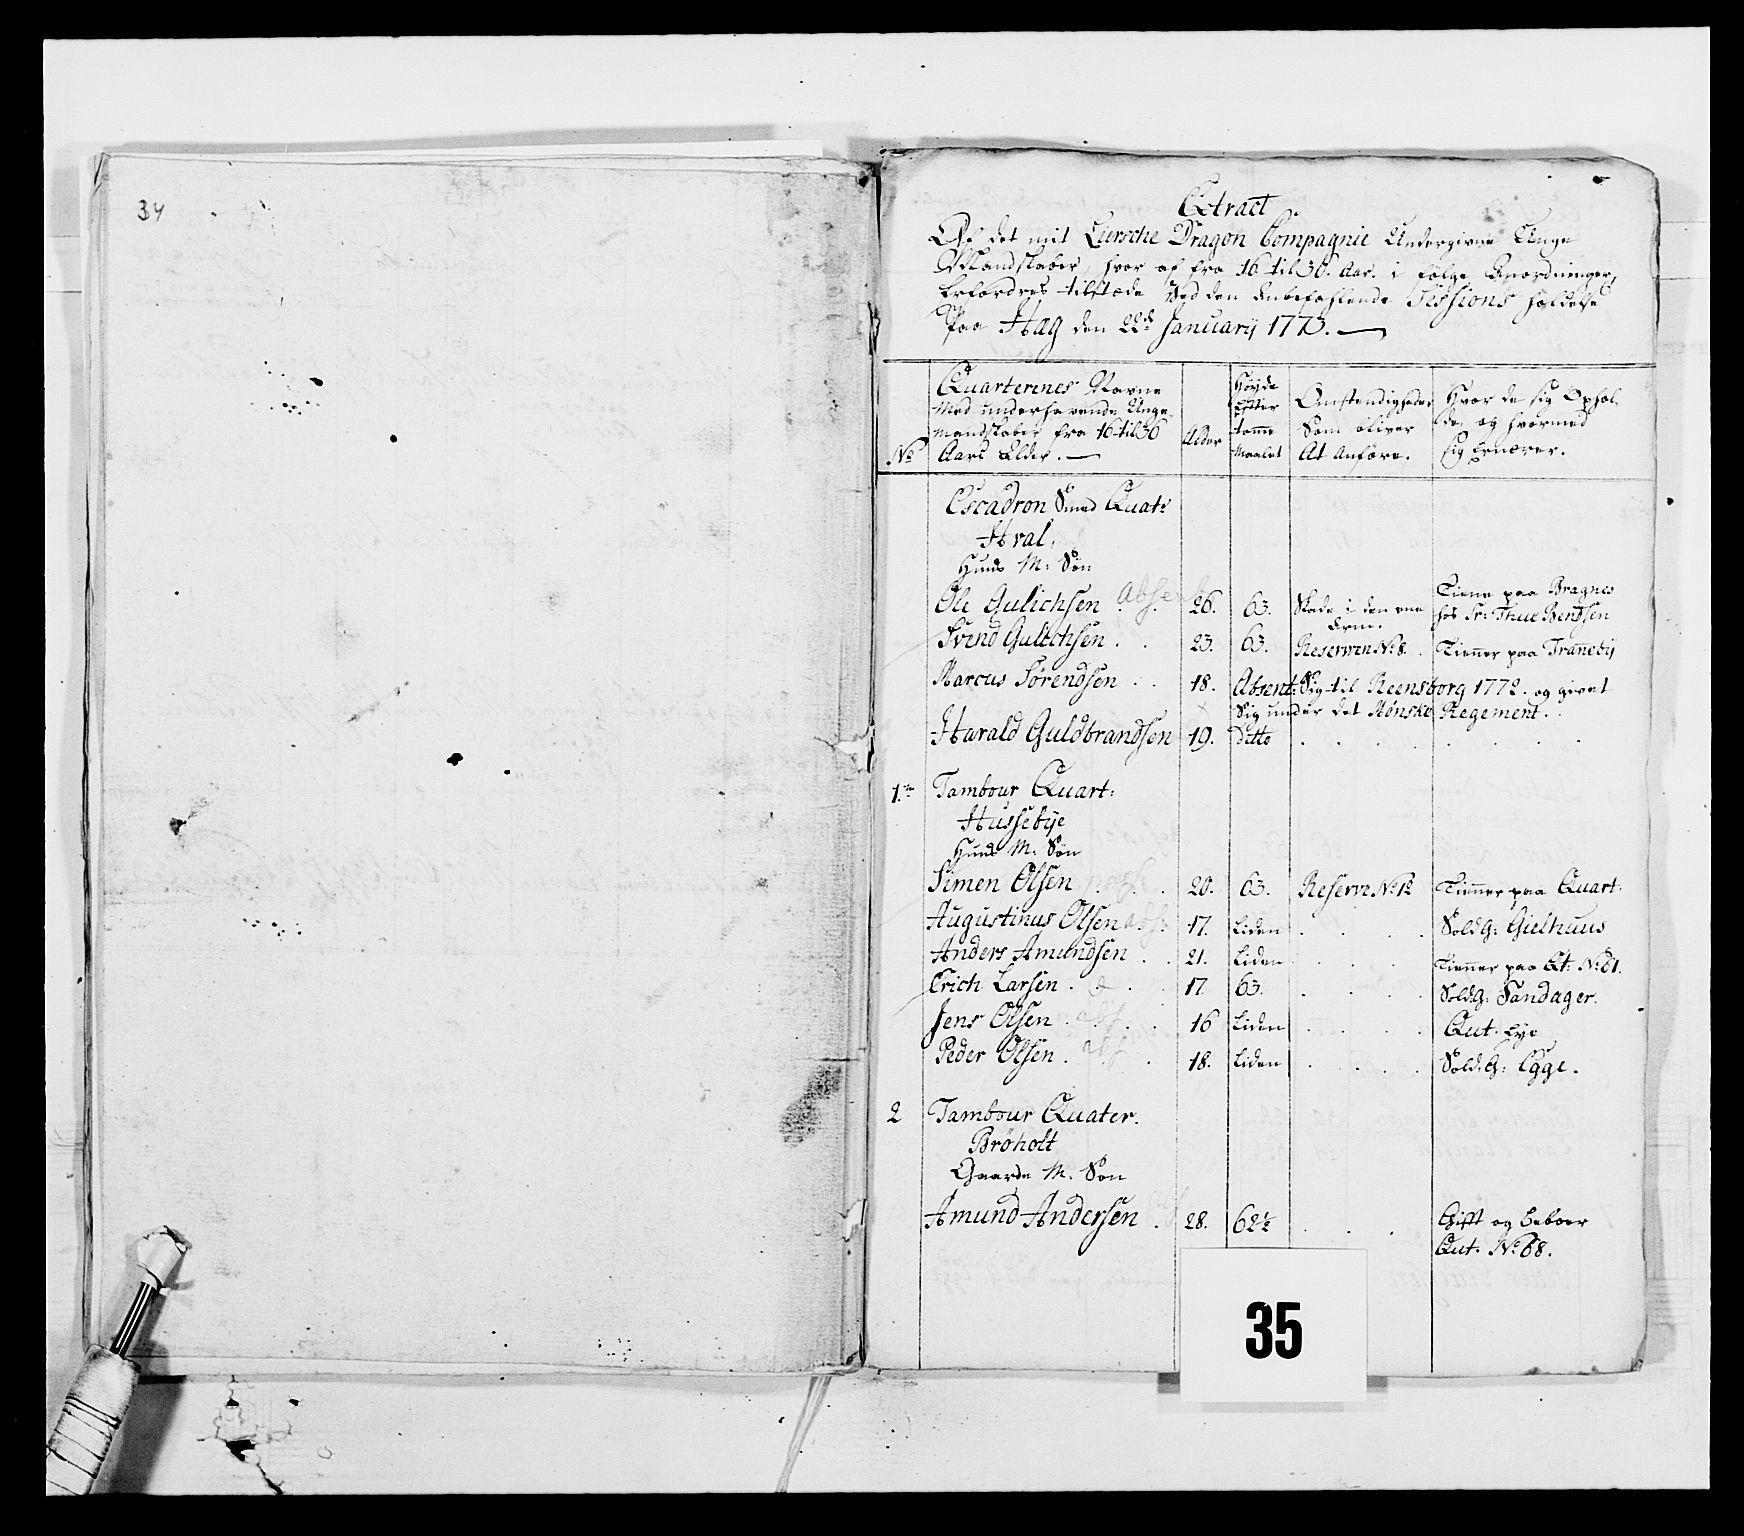 34
Extract
Af det mit Liersche Dragon Compagnie Undergivne Unge
Mandskaber, hvor af fra 16 til 36. Aar. i følge Anordninger,
Erfordres tilstæde Ved den Anbefahlende Sessions holdelse
Paa Hag den 22de January 1773.
No
Quarterenes Navne
Med underhavende Unge
Mandskaber fra 16 til 36
Aars Elder.
Alder
Høyde
Efter
tomme
Maalet
Omstendigheder
Som bliver
At Anføre.
Hvor de sig Ophol
de, og hvormed
sig Ernærer.
Escadron Smed Quat:
Hval,
Huus M: Søn
Ole Gulichsen . Absent 26. 63. Skade i den ene Arm. Tiene paa Bragnes
hos Sr: Thue Bendsen
Svend Gulichsen . . 23. 63. Reserven No 8. Tienner paa Tranneby
Marcus Sørendsen . . 18. Absent: Sig til Reensborg 1772. og givet
Sig under det Mønske Regement.
Harald Guldbrandsen 19. ditto . . . . . . . .
1te Tambour Quart:
Hussebye
Huus M: Søn
Simen Olsen . . . 20. 63. Reserve No 12 Tienner paa Quart:
Augustinus Olsen abs: 17. Liden . . . Sold G: Gielhuus
Anders Amundsen . . 21. Liden . . . Tienner paa Qt: No 61.
Erich Larsen . . . 17. 63. . . . Sold. G: Sandager.
Jens Olsen . abs . . 16 Liden . . . Qut. Lye
Peder Olsen . abs . 18. Liden . . . Sold: G: Egge.
2 Tambour Quater.
Brøholt
Gaarde M. Søn
Amund Andersen . 28. 62½ . . . Gift og beboer
Qut. No 68.
35